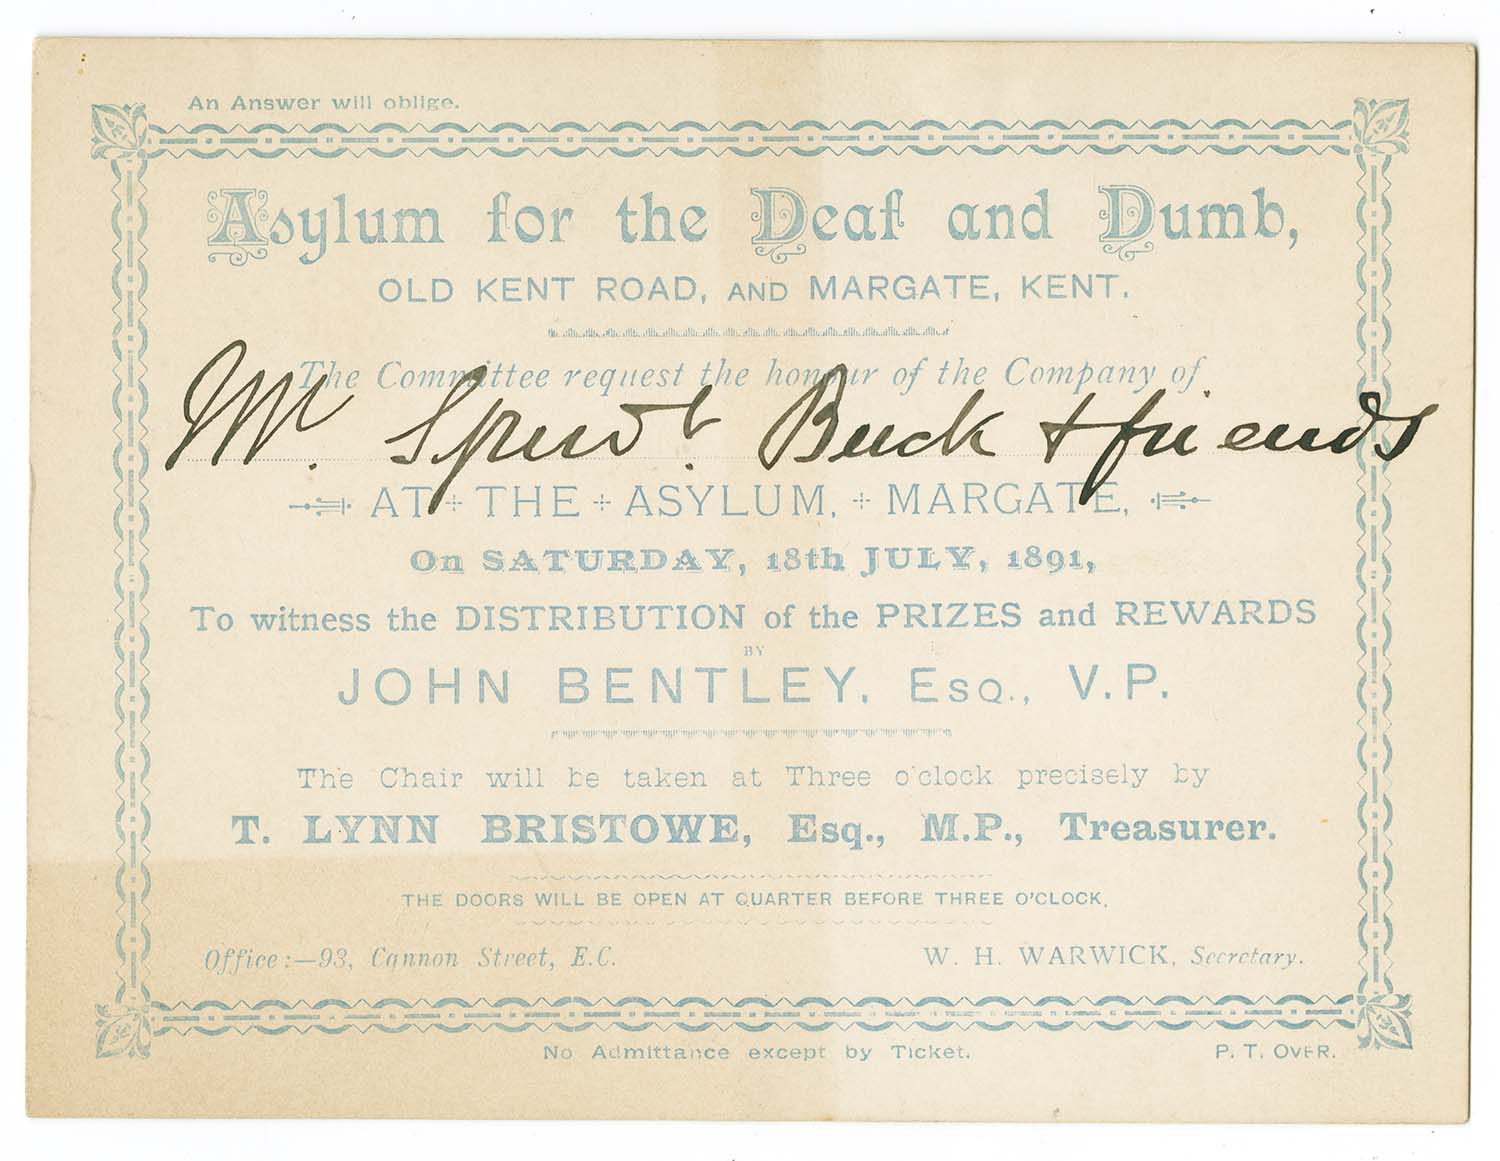 An Answer will oblige.
Asylum for the Deaf and Dumb,
OLD KENT ROAD, AND MARGATE, KENT.
The Committee request the honour of the Company of
Mr. Buck + friends
AT + THE + ASYLUM, + MARGATE,
On SATURDAY, 18th JULY, 1891,
To witness the DISTRIBUTION of the PRIZES and REWARDS
BY
JOHN BENTLEY, ESQ., V.P.
The Chair will be taken at Three o'clock precisely by
T. LYNN BRISTOWE, Esq., M.P., Treasurer.
THE DOORS WILL BE OPEN AT QUARTER BEFORE THREE O'CLOCK.
Office:—93, Cannon Street, E.C. W. H. WARWICK, Secretary.
No Admittance except by Ticket. P. T. OVER.